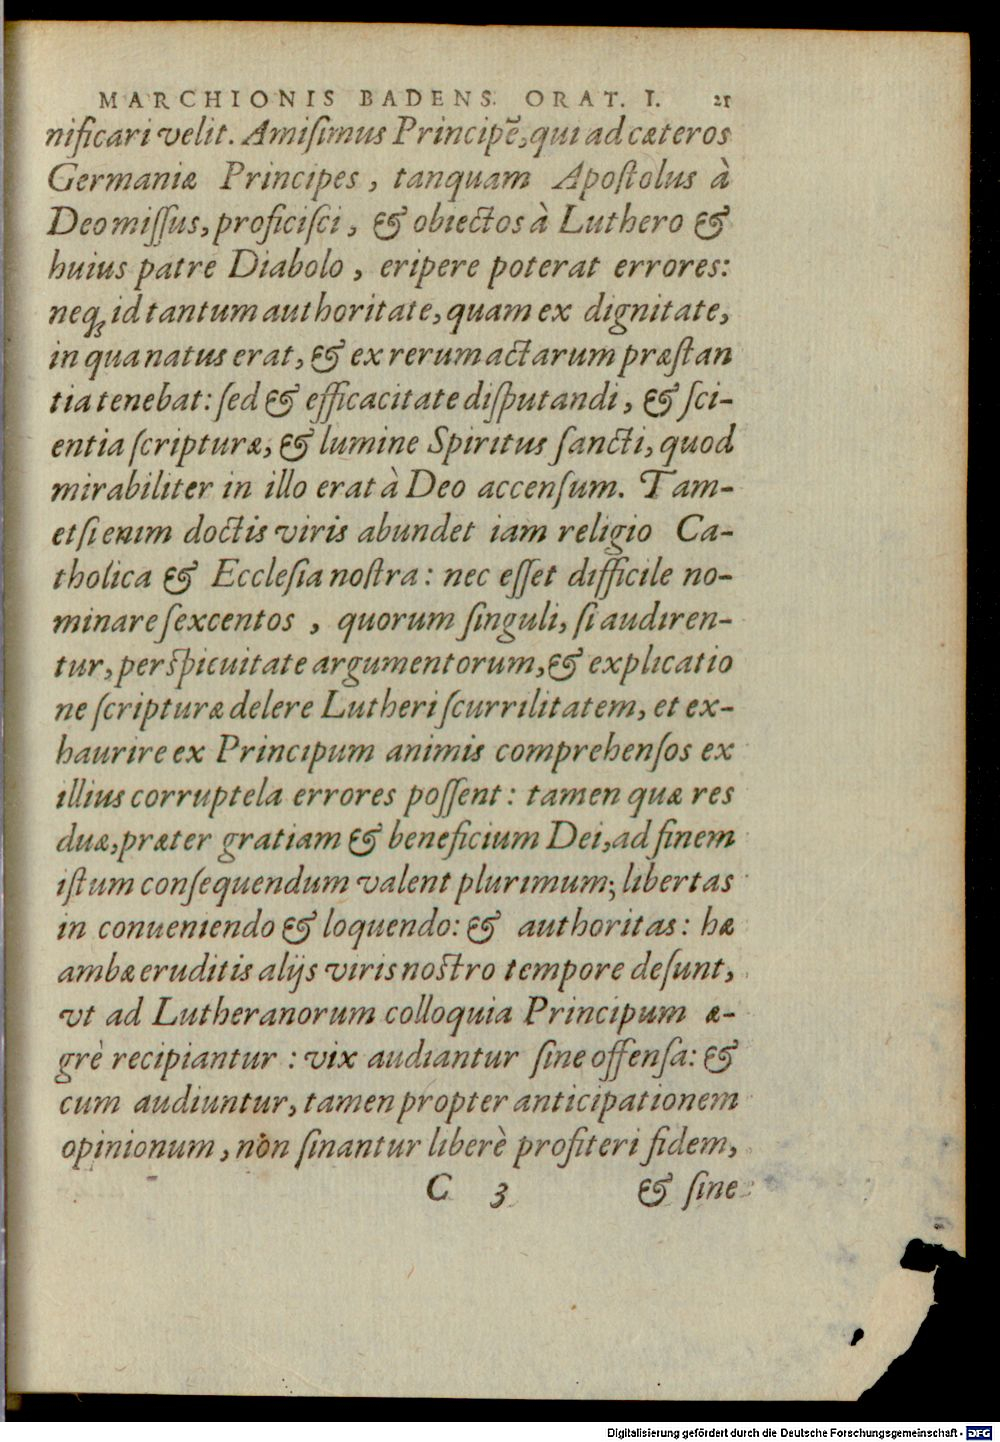 MARCHIONIS BADENS. ORAT. I. 21
nificari velit. Amiſimus Principē, qui ad cæteros
Germaniæ Principes, tanquam Apoſtolus à
Deo miſſus, proficiſci, & obiectos à Luthero &
huius patre Diabolo, eripere poterat errores:
neqꝫ id tantum authoritate, quam ex dignitate,
in qua natus erat, & ex rerum actarum præſtan
tia tenebat: ſed & efficacitate diſputandi, & ſci-
entia ſcripturæ, & lumine Spiritus ſancti, quod
mirabiliter in illo erat à Deo accenſum. Tam-
etſi enim doctis viris abundet iam religio Ca-
tholica & Eccleſia noſtra: nec eſſet difficile no-
minare ſexcentos, quorum ſinguli, ſi audiren-
tur, perſpicuitate argumentorum, & explicatio
ne ſcripturæ delere Lutheri ſcurrilitatem, et ex-
haurire ex Principum animis comprehenſos ex
illius corruptela errores poſſent: tamen quæ res
duæ, præter gratiam & beneficium Dei, ad finem
iſtum conſequendum valent plurimum; libertas
in conueniendo & loquendo: & authoritas: hæ
ambæ eruditis alijs viris noſtro tempore deſunt,
vt ad Lutheranorum colloquia Principum æ-
grè recipiantur: vix audiantur ſine offenſa: &
cum audiuntur, tamen propter anticipationem
opinionum, non ſinantur liberè profiteri fidem,
C 3 & ſine
Digitalisierung gefördert durch die Deutsche Forschungsgemeinschaft - DFG